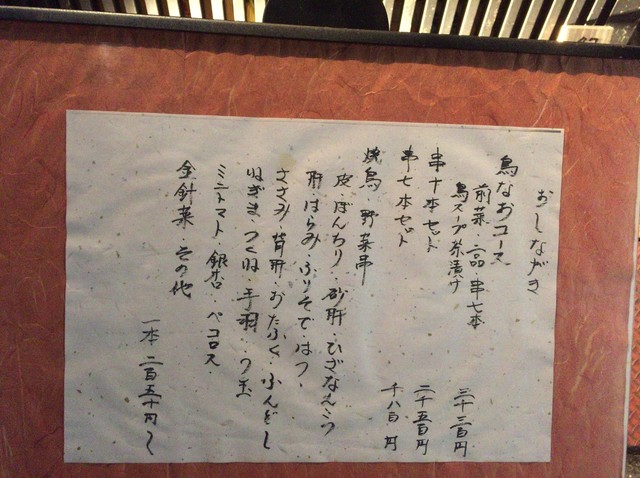 おしながき
鳥なおコース
前菜・二品・串七本
鳥スープ茶漬け 三千三百円
串十本セット 二千五百円
串七本セット 千八百円
焼鳥・野菜串
皮・ぼんちり・砂肝・ひざなんこつ
肝・はらみ・ふりそで・はつ・
ささみ・背肝・おたふく・ふんどし
ねぎま・つくね・手羽・つ玉
ミニトマト・銀杏・ペコロス・
金針菜・その他
一本 二百五十円〜